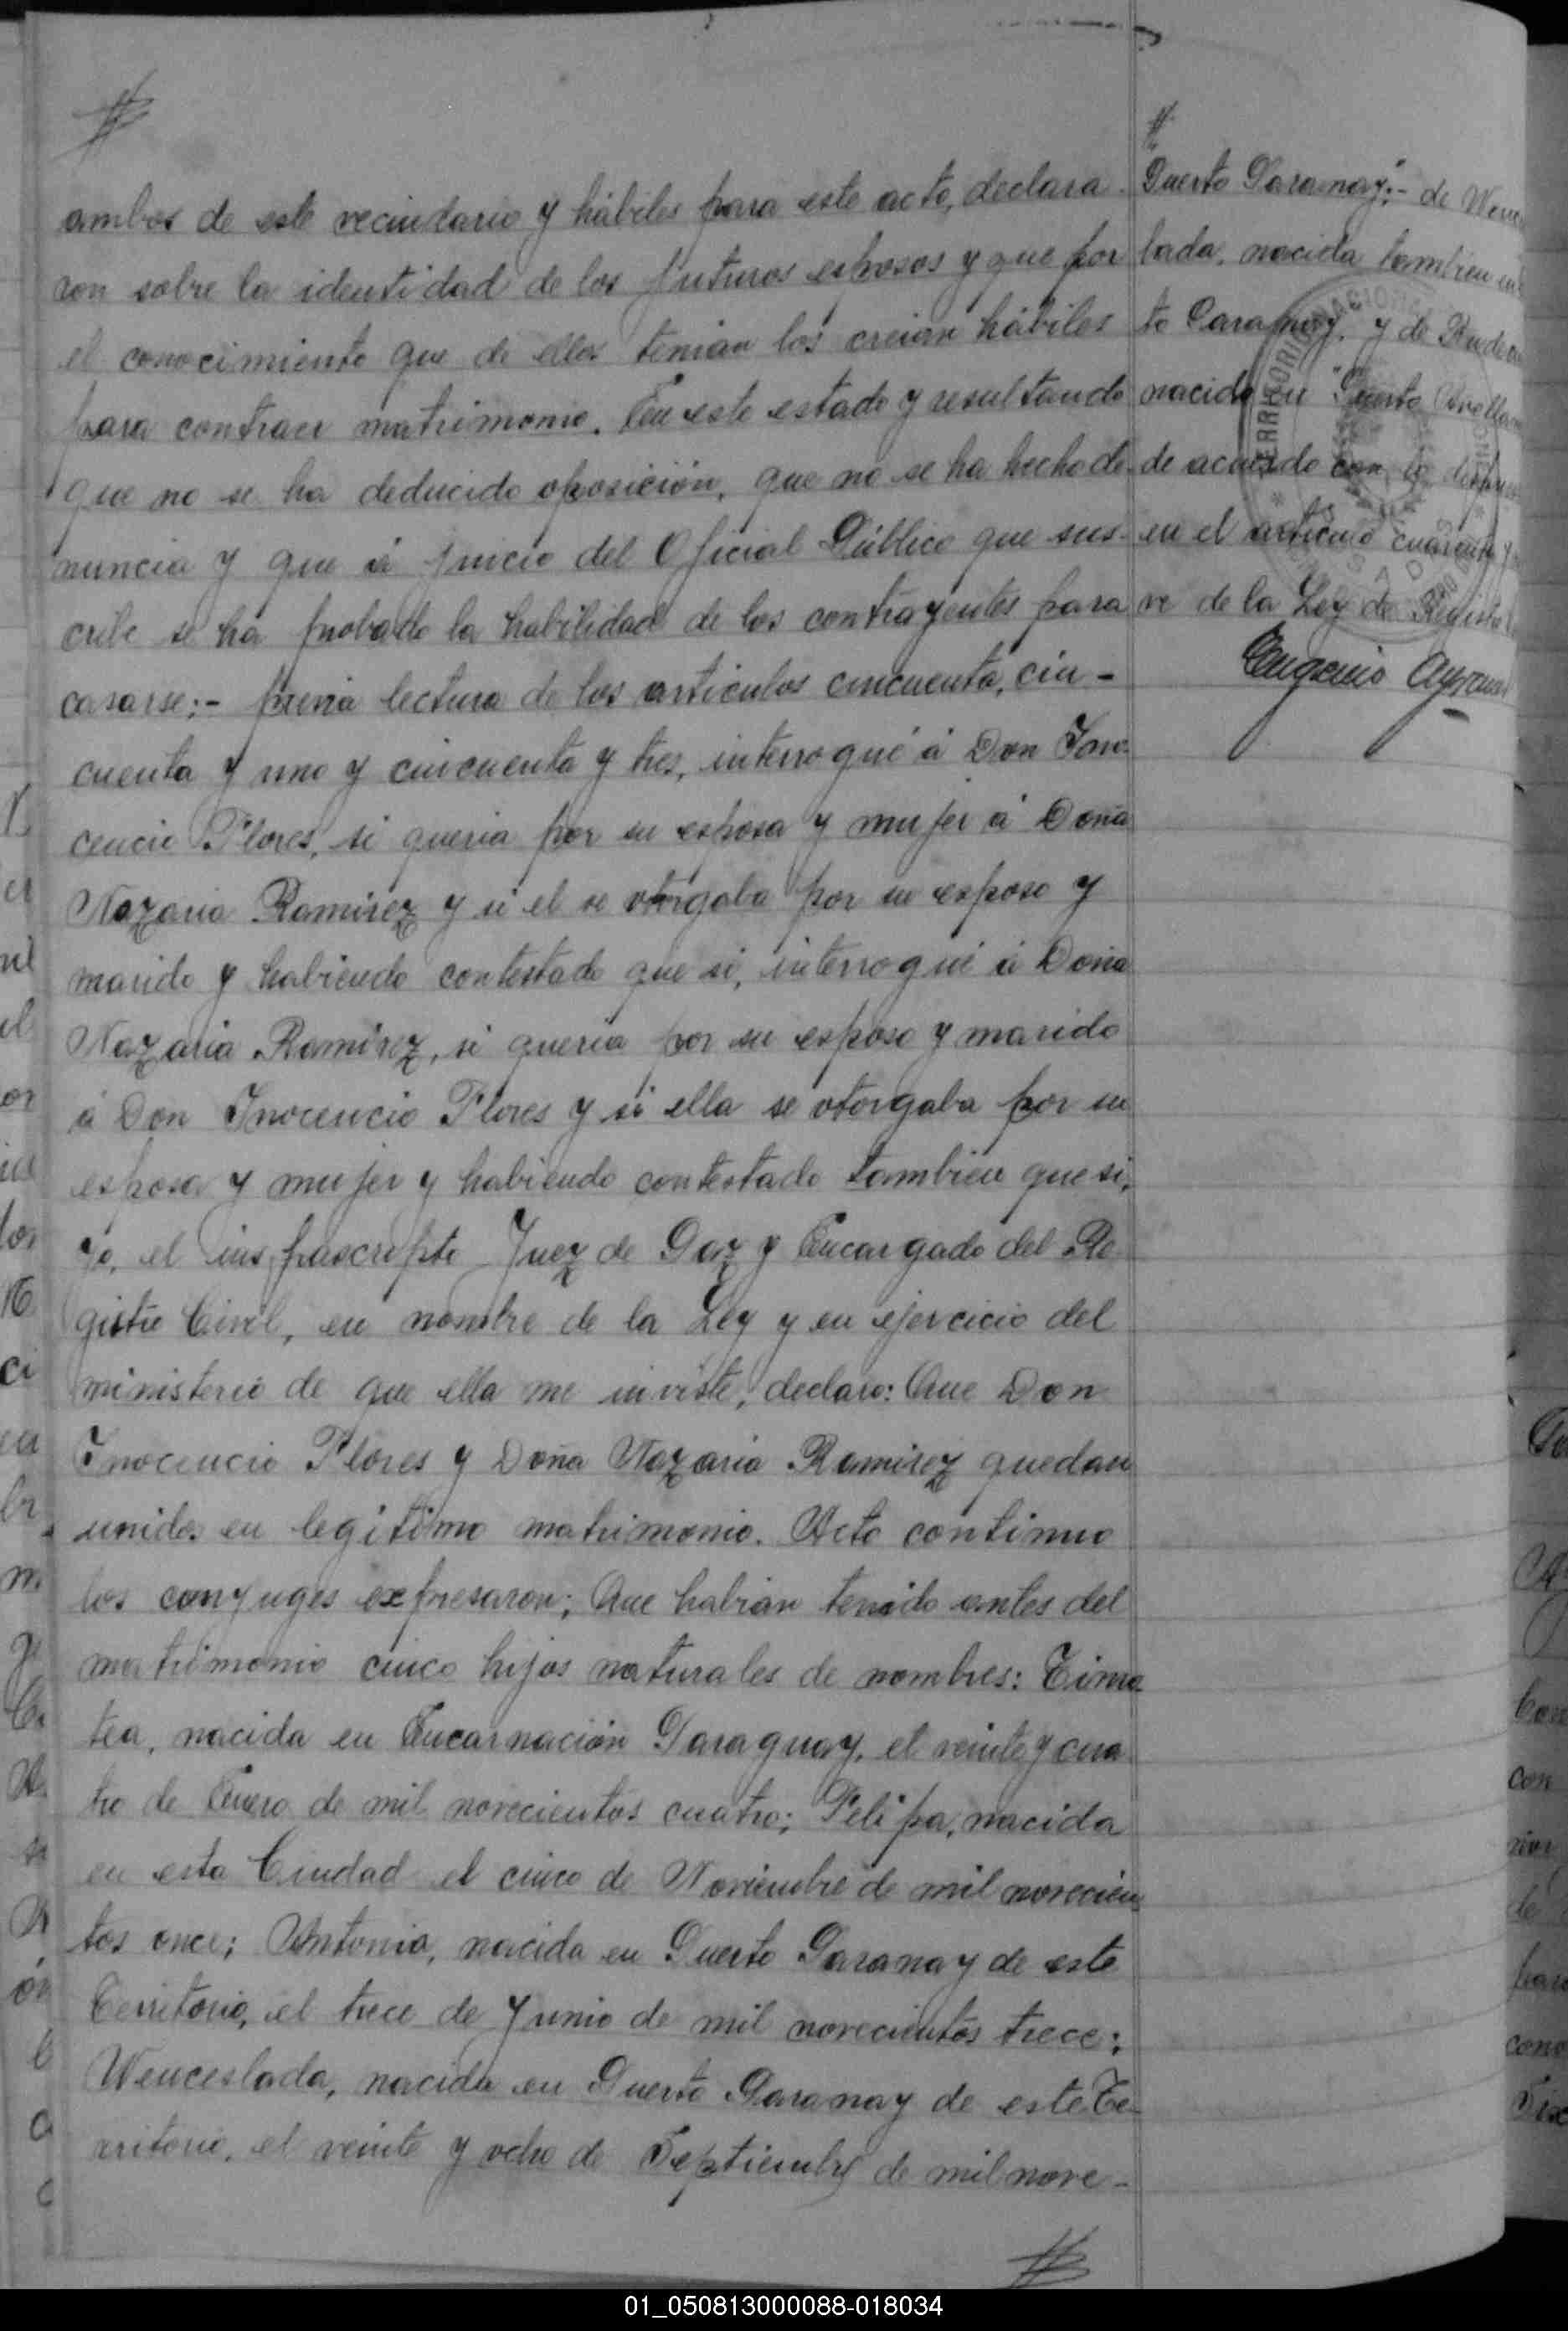 ambos de este vecindario y hábiles para este acto, declara-
ron sobre la identidad de los futuros esposos y que por
el conocimiento que de ellos tenian los creian hábiles
para contraer matrimonio. En este estado y resultando
que no se ha deducido oposición, que no se ha hecho de-
nuncia y que á juicio del Oficial Público que sus-
cribe se ha probado la habilidad de los contrayentes para
casarse:- previa lectura de los articulos cincuenta, cin-
cuenta y uno y cincuenta y tres, interrogué á Don Ino-
cencio Flores, si queria por su esposa y mujer á Doña
Nazaria Ramirez y si el se otorgaba por su esposo y
marido y habiendo contestado que si, interrogué á Doña
Nazaria Ramirez, si queria por su esposo y marido
á Don Inocencio Flores y si ella se otorgaba por su
esposa y mujer y habiendo contestado tambien que si,
yo, el infrascripto Juez de Paz y Encargado del Re
gistro Civil, en nombre de la Ley y en ejercicio del
ministerio de que ella me inviste, declaro: Que Don
Inocencio Flores y Doña Nazaria Ramirez quedan
unidos en legitimo matrimonio. Acto continuo
los conyuges expresaron; Que habian tenido antes del
matrimonio cinco hijos naturales de nombres: Timo
tea, nacida en Encarnación Paraguay, el veinte y cua
tro de Enero de mil novecientos cuatro; Felipa, nacida
en esta Ciudad el cinco de Noviembre de mil novecien
tos once; Antonia, nacida en Puerto Paranay de este
Territorio, el trece de Junio de mil novecientos trece;
Wenceslada, nacida en Puerto Paranay de este Te-
rritorio, el veinte y ocho de Septiembre de mil nove-
"Puerto Paranay":- de Wence
lada, nacida tambien en
to Paranay, y de
nacido en "Puerto
de acuerdo con lo
en el articulo cuarenta y
ve de la Ley de Registro
Eugenio
TERRITORIO NACIONAL
POSADAS
01_050813000088-018034